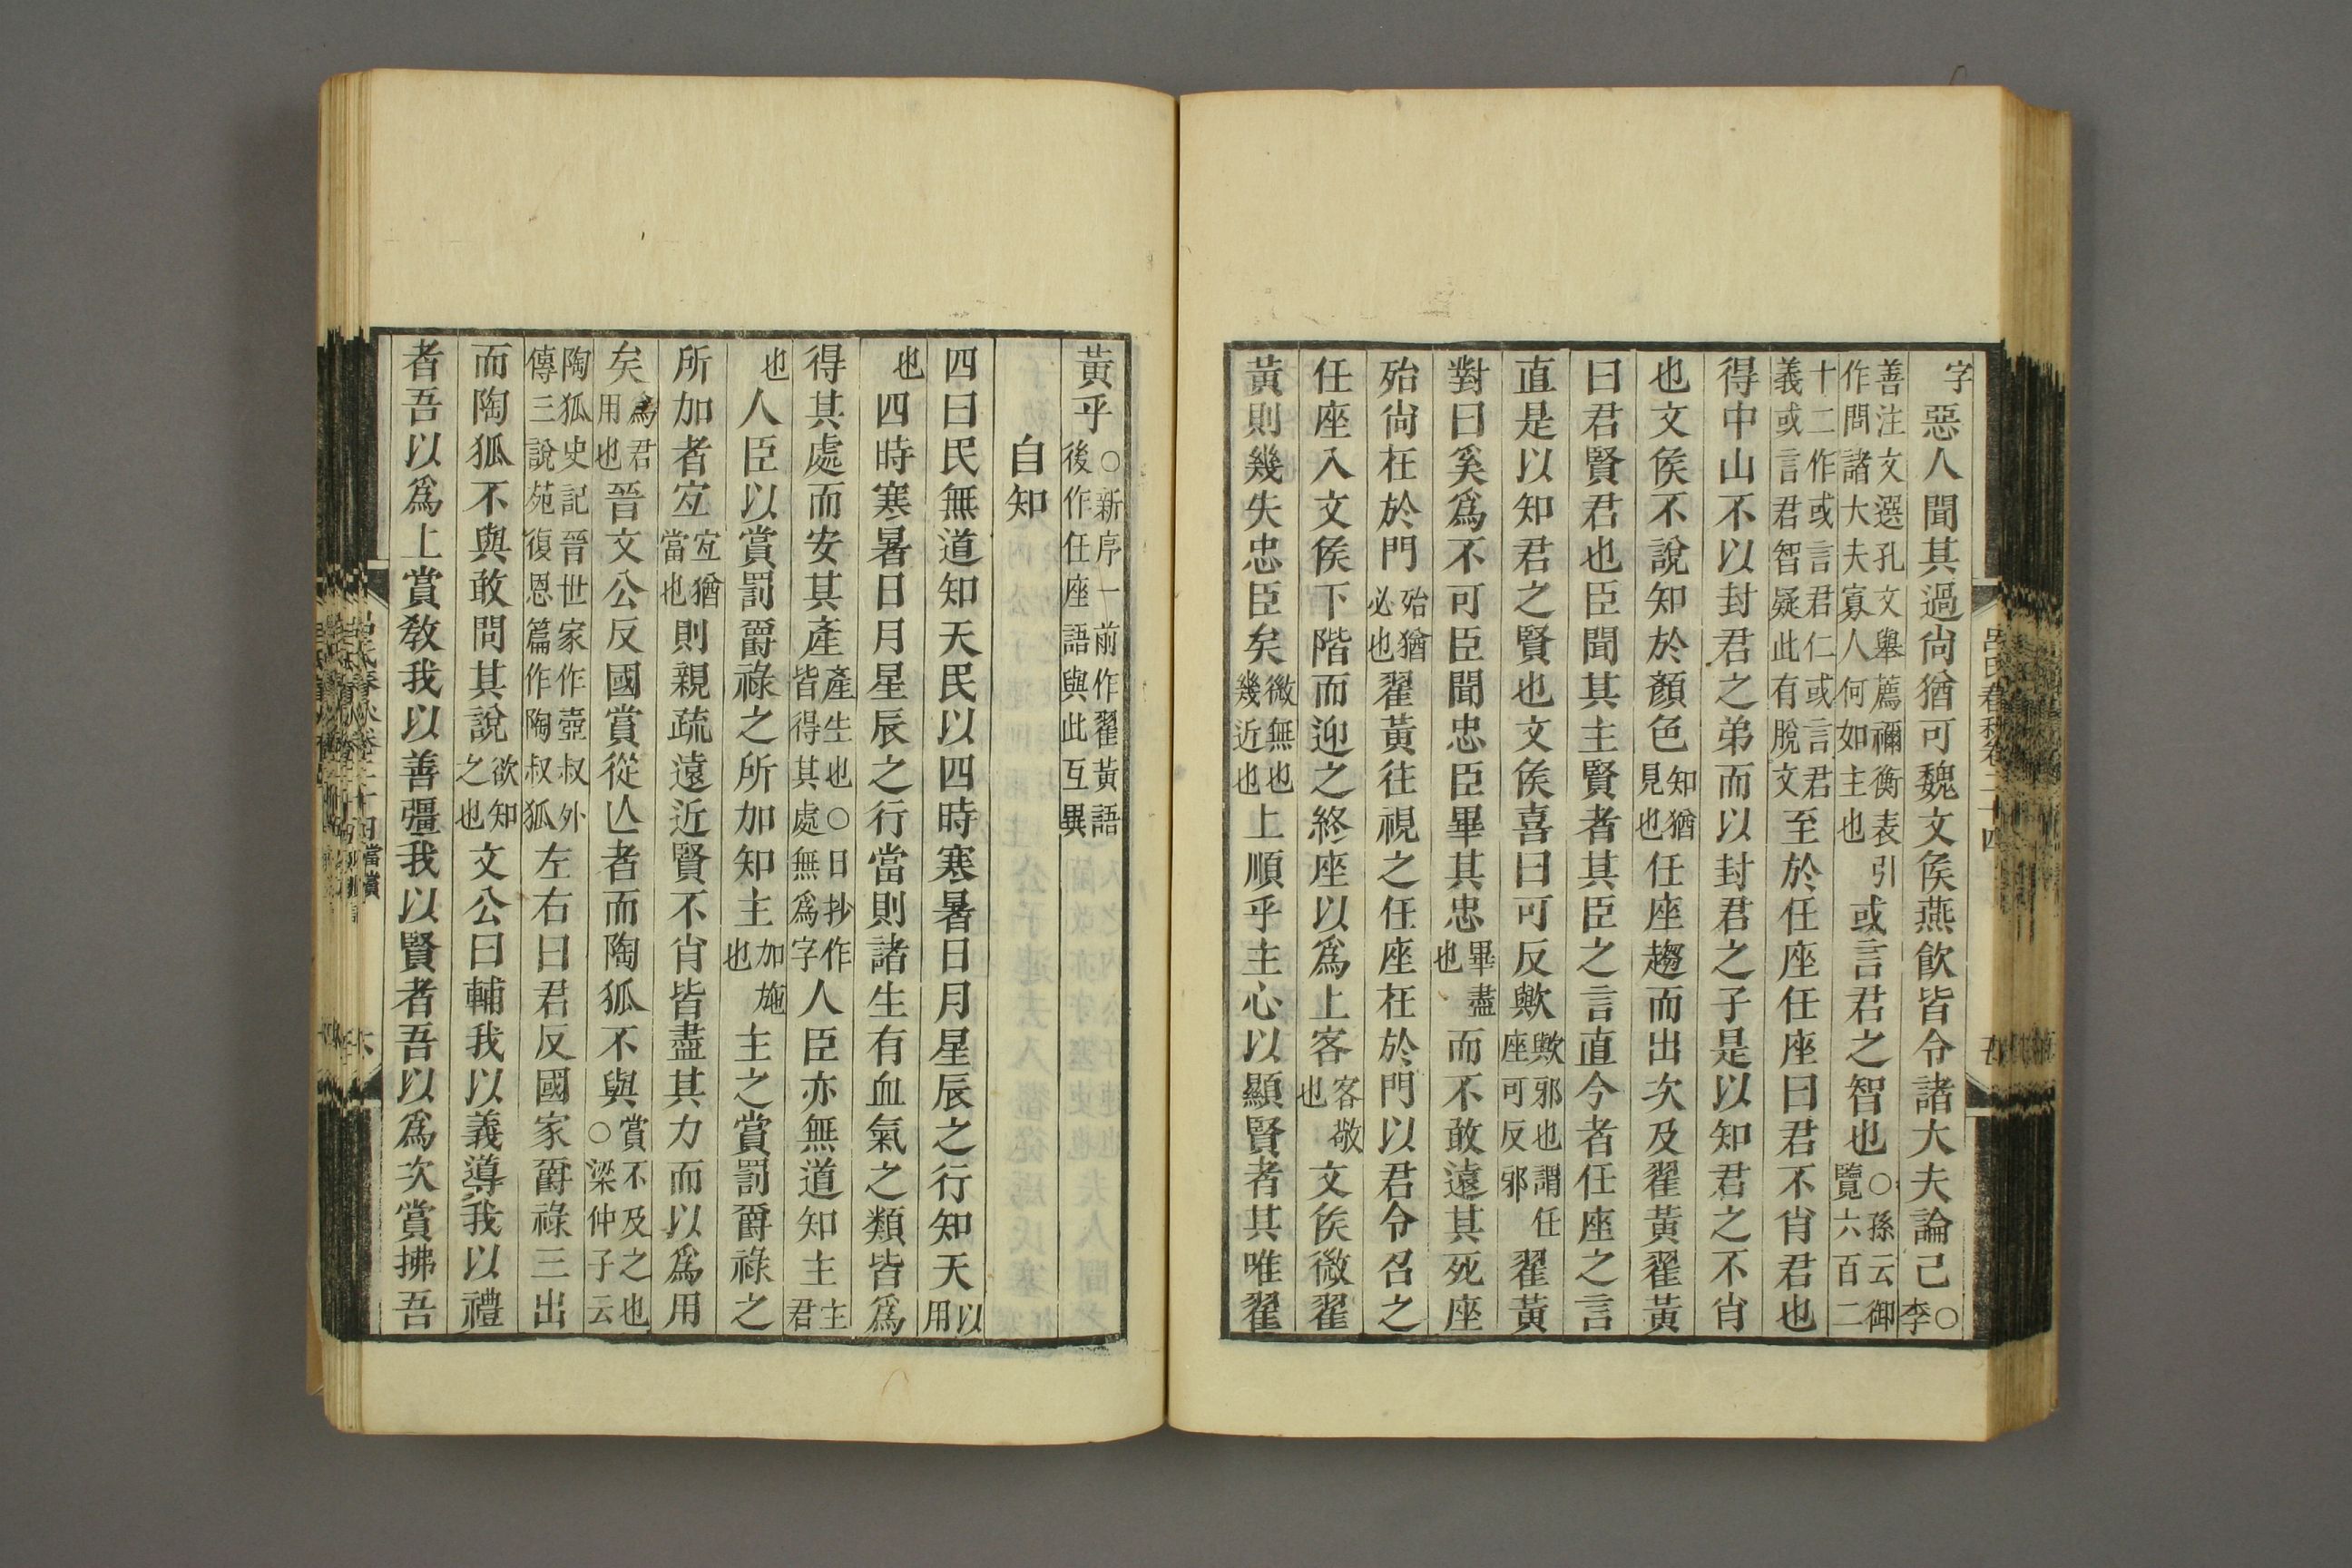 字惡人聞其過尚猶可魏文侯燕飲皆令諸大夫論己○李
善注文選孔文舉薦禰衡表引作問諸大夫寡人何如主也或言君之智也○孫云御覽六百二
十二作或言君仁或言君義或言君智疑此有脫文至於任座任座曰君不肖君也
得中山不以封君之弟而以封君之子是以知君之不肖
也文侯不說知於顏色知猶見也任座趨而出次及翟黃翟黃
曰君賢君也臣聞其主賢者其臣之言直今者任座之言
直是以知君之賢也文侯喜曰可反歟歟邪也謂任座可反邪翟黃
對曰奚爲不可臣聞忠臣畢其忠畢盡也而不敢遠其死座
殆尚在於門殆猶必也翟黃往視之任座在於門以君令召之
任座入文侯下階而迎之終座以爲上客客敬也文侯微翟
黃則幾失忠臣矣微無也幾近也上順乎主心以顯賢者其唯翟
呂氏春秋卷二十四
黃乎○新序一前作翟黃語後作任座語與此互異
自知
四曰民無道知天民以四時寒暑日月星辰之行知天以用
也四時寒暑日月星辰之行當則諸生有血氣之類皆爲
得其處而安其產產生也○日抄作皆得其處無爲字人臣亦無道知主主君
也人臣以賞罰爵祿之所加知主加施也主之賞罰爵祿之
所加者宜宜猶當也則親疏遠近賢不肖皆盡其力而以爲用
矣爲君用也晉文公反國賞從亾者而陶狐不與賞不及之也○梁仲子云
陶狐史記晉世家作壺叔外傳三說苑復恩篇作陶叔狐左右曰君反國家爵祿三出
而陶狐不與敢問其說欲知之也文公曰輔我以義導我以禮
者吾以爲上賞敎我以善彊我以賢者吾以爲次賞拂吾
呂氏春秋卷二十四當賞
六